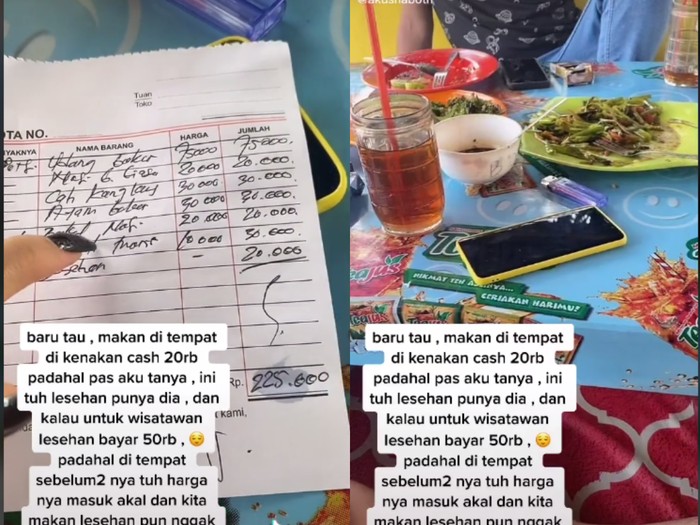 @akusnaboth
Tuan
Toko
OTA NO.
YAKNYA NAMA BARANG HARGA JUMLAH
Udang bakar 75000 75.000.
Nasi 20000 20.000.
Cah Kangkung 30000 30.000.
Ayam bakar 30000 30.000.
Nasi 20.000 20.000.
manis 10000 30.000.
Lesehan - 20.000
Rp. 225.000
kami,
baru tau , makan di tempat
di kenakan cash 20rb
padahal pas aku tanya , ini
tuh lesehan punya dia , dan
kalau untuk wisatawan
lesehan bayar 50rb , 😔
padahal di tempat
sebelum2 nya tuh harga
nya masuk akal dan kita
makan lesehan pun nggak
NIKMAT TEH
CERIAKAN HARIMU?
baru tau , makan di tempat
di kenakan cash 20rb
padahal pas aku tanya , ini
tuh lesehan punya dia , dan
kalau untuk wisatawan
lesehan bayar 50rb , 😔
padahal di tempat
sebelum2 nya tuh harga
nya masuk akal dan kita
makan lesehan pun nggak